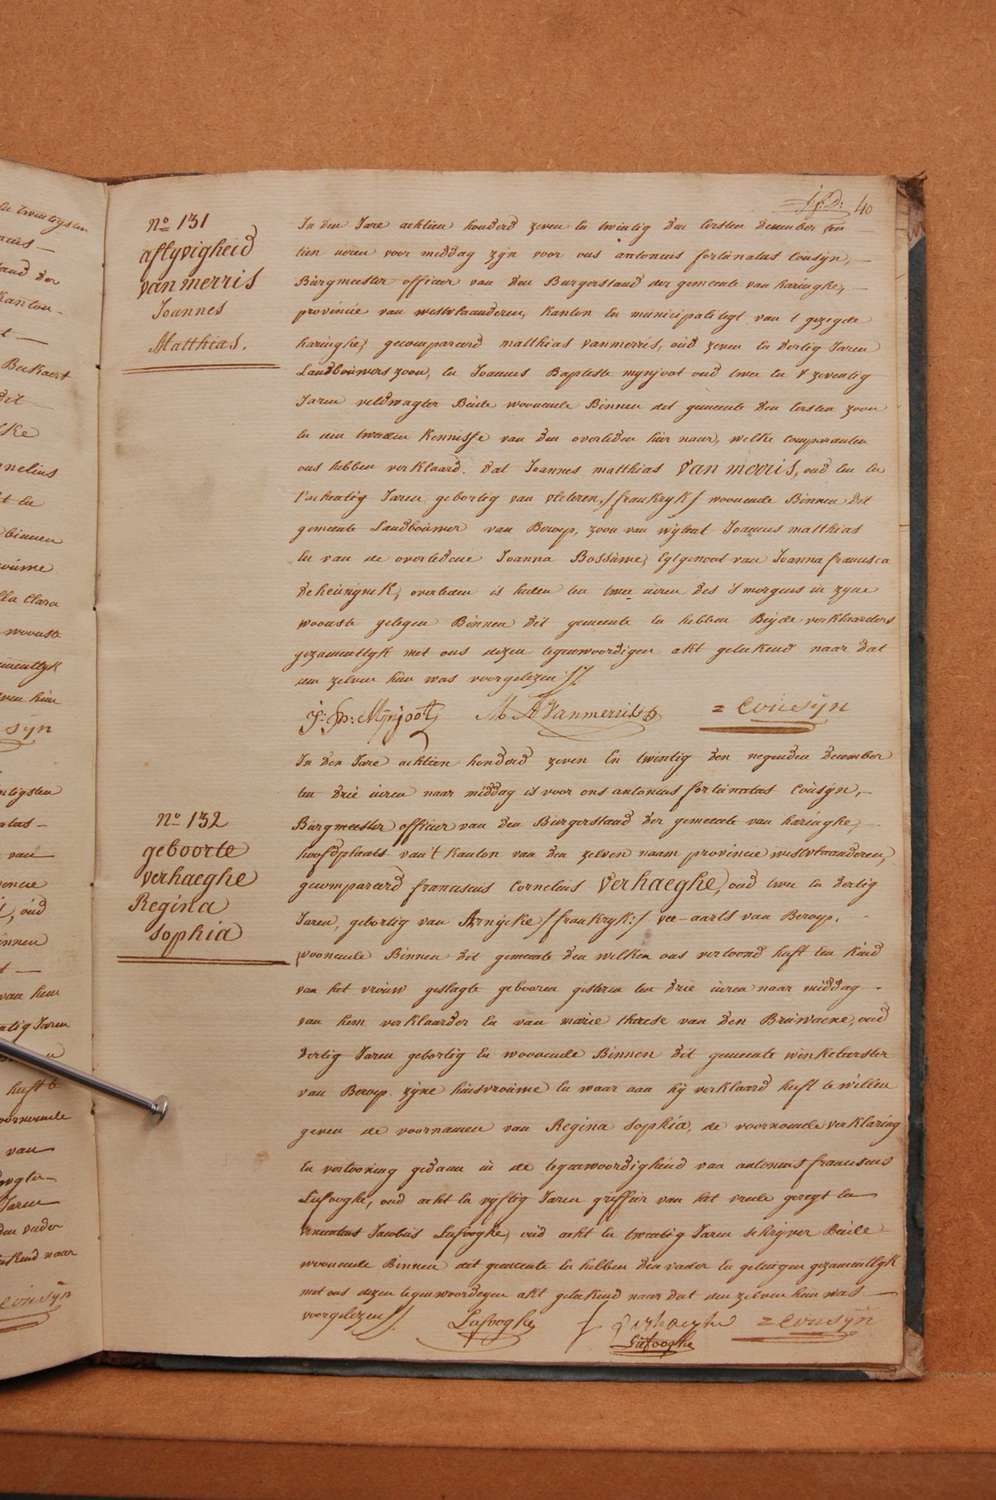 40
No 131
aflyvigheid
van merris
Joannes
Matthias.
In den Jare achtien honderd zeven En twintig den Eersten december
tien uren voor middag zijn voor ons antonius fortunatus Cousyn,
Burgmeester officier van den Burgerstand der gemeente van haringhe,
provincie van westvlaanderen, kanton En municipaliteyt van t gezegde
haringhe, gecompareerd matthias vanmerris, oud zeven En dertig Jaren
Landbouwers zoon, En Joannes Baptiste mynjoot oud twee En t zeventig
Jaren veldwagter Beide woonende Binnen det gemeente den Eersten zoon
En den tweeden kennisse van den overleden hier naer, welke comparanten
ons hebben verklaard, dat Joannes matthias Van merris, oud Een En
t'achentig Jaren gebortig van vleteren, /frankryk/ woonende Binnen dit
gemeente Landbouwer van Beroep, zoon van wylent Joannes matthias
En van de overledene Joanna Bossame, Egtgenoot van Joanna francisca
Dekeirgieck, overleden is heden ten twee uren des s'morgens in zyne
woonste gelegen Binnen dit gemeente En hebben Beyde verklaerders
gezamentlyk met ons dezen tegenwoordigen akt geteekend naar dat
hun was voorgelezen //.
J: Bp: Mynjoot M Vanmerris = Cousyn
No 132
geboorte
verhaeghe
Regina
Sophia
In den Jare achtien honderd zeven En twintig den negenden december
ten drie uren naar middag is voor ons antonius fortunatus Cousyn,
Burgmeester officier van den Burgerstand der gemeente van haringhe,
hoofdplaats van't kanton van den zelven naam provincie westvlaanderen,
gecompareerd franciscus Cornelius Verhaeghe, oud twee En dertig
Jaren, gebortig van Arnijcke /frankryk:/ van Beroep.
woonende Binnen dit gemeente den welken ons vertoond heeft Een kind
van het vrouw geslagte gebooren gisteren ten drie uren naar middag.
van hem verklaarder En van marie therese van den Bruwaene, oud
dertig Jaren gebortig En woonende Binnen dit gemeente winkelierster
van Beroep. zijne huisvrouwe En waar aan hij verklaard heeft te willen
geven de voornamen van Regina Sophia, de voornoemde verklaring
En vertooning gedaan in de tegenwoordigheid van antonius franciscus
Lafooghe, oud acht En vyftig Jaren griffier van het vrede geregt En
Jacobus Lafooghe, oud acht En twintig Jaren schrijver Beide
woonende Binnen dit gemeente En hebben den vader En getuigen gezamentlyk
met ons dezen tegenwoordigen akt geteekend naar dat den zelven hun was
voorgelezen //. Lafooghe f verhaeghe = Cousyn
Lafooghe